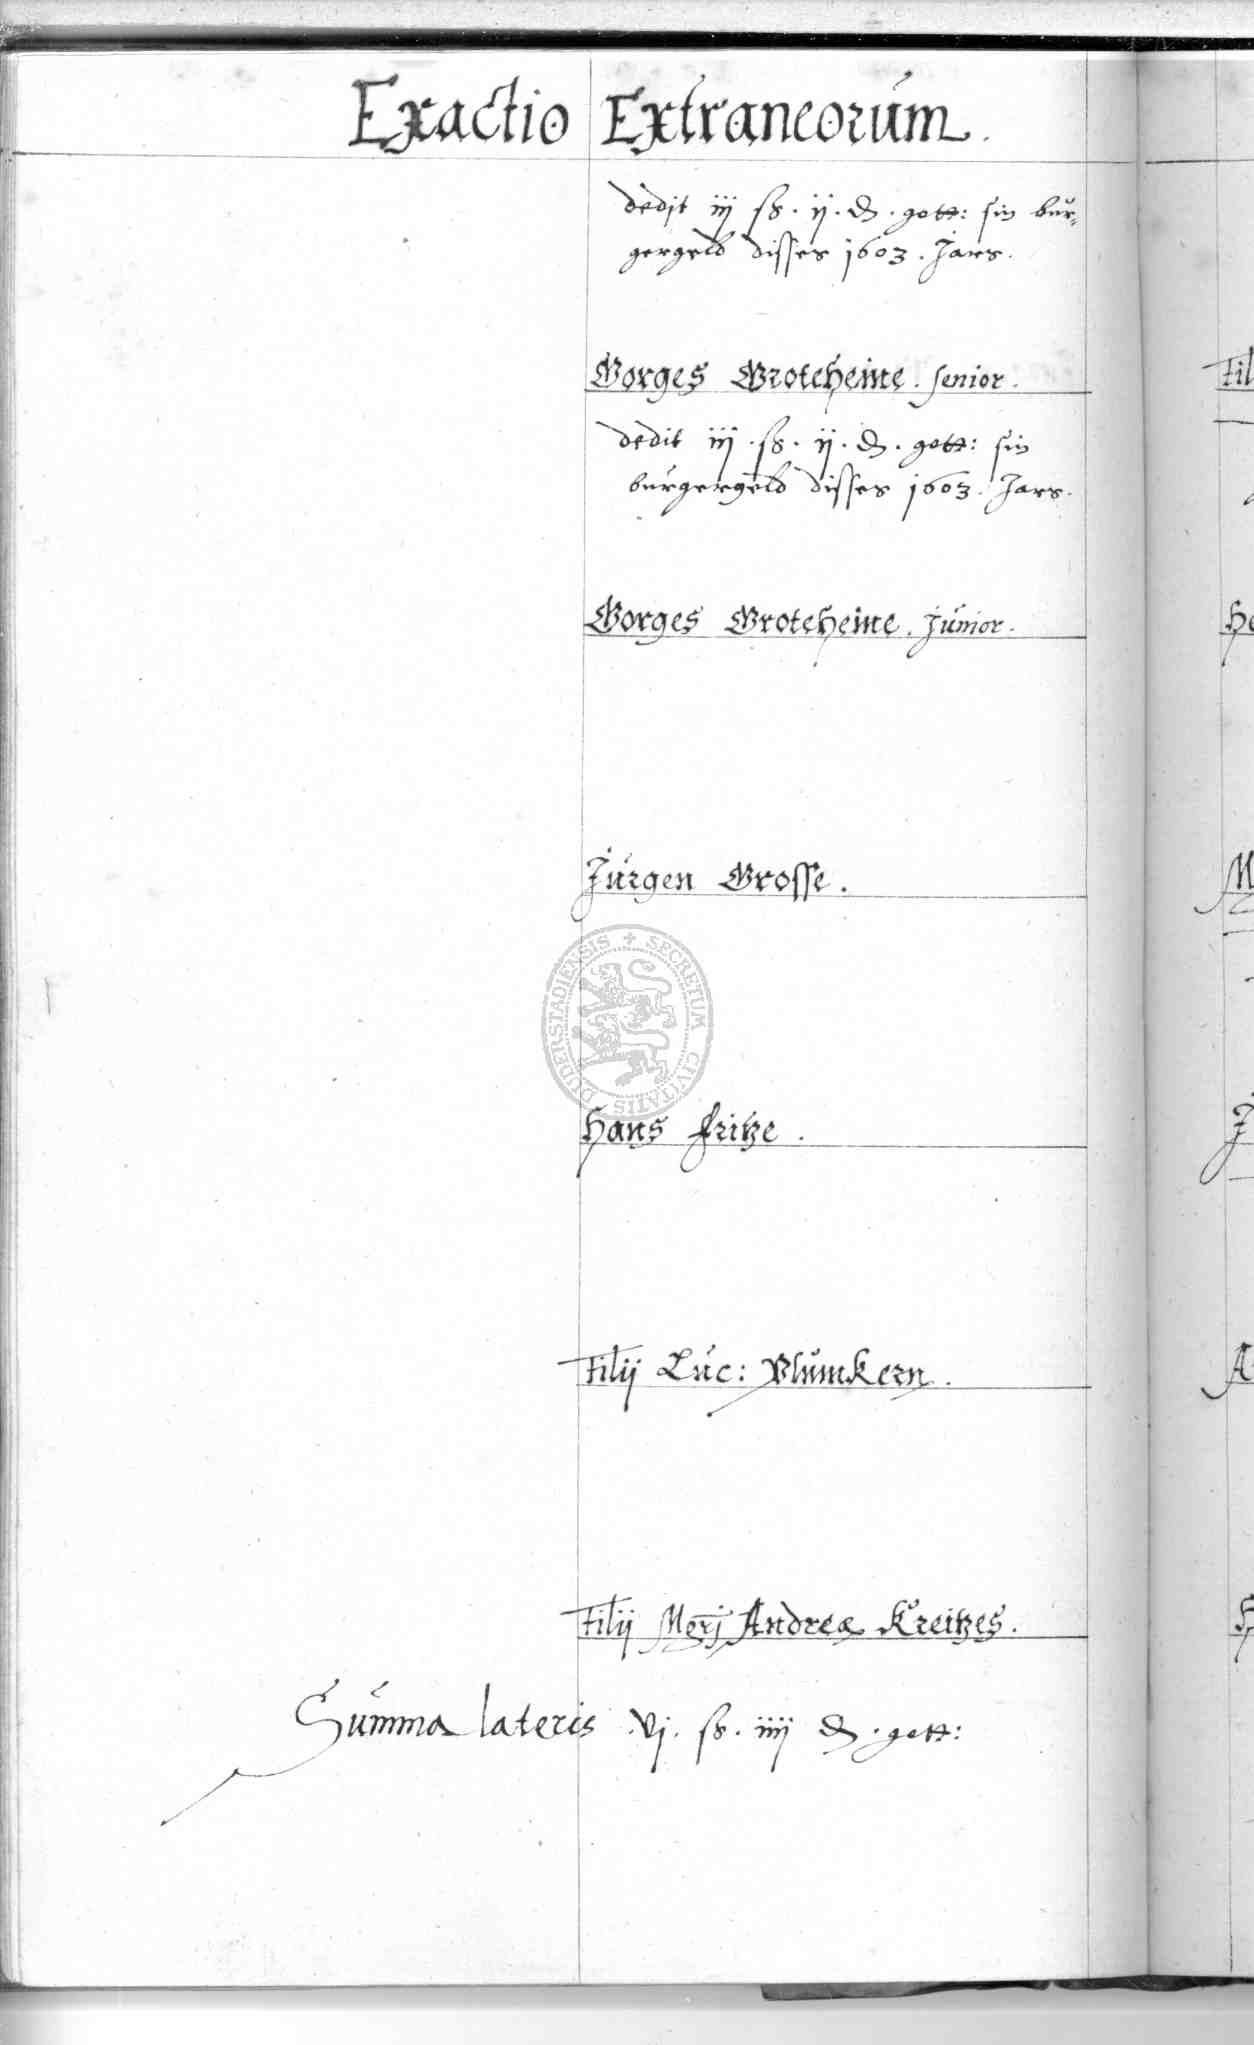 Exactio Extraneorum.
dedit iij ss. ij. d. gott: sin bur-
gergeld disses 1603. Jars.
Gorges Groteheine. senior.
dedit iij. ss. ij. d. gott: sin
burgergeld disses 1603. Jars.
Gorges Groteheine. Junior.
Jurgen Grosse.
DUDERSTADIENSIS + SECRETUM CIVITATIS
Hans Fritze.
Filij Luc: Blumkern.
Filij Mgri Andreæ Kreitzes.
Summa lateris vj. ss. iiij d. gott: